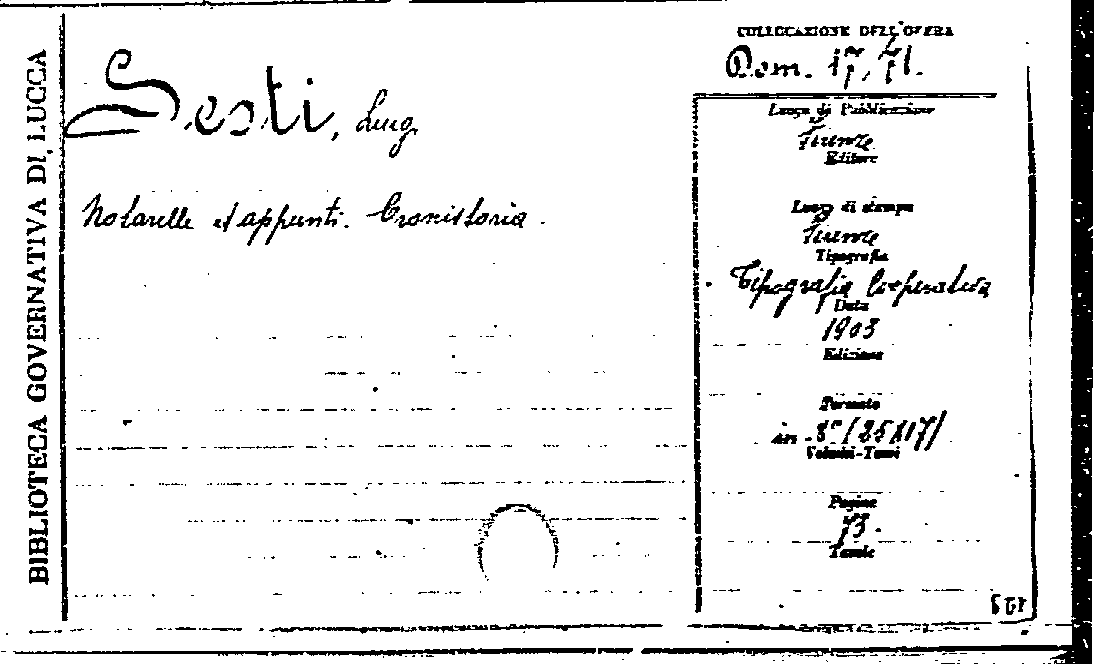 BIBLIOTECA GOVERNATIVA DI LUCCA
Sesti, Luig
Notarelle ed appunti. Cronistoria.
COLLOCAZIONE DELL'OPERA
Dom. 17, 71.
Luogo di Pubblicazione
Firenze
Editore
Luogo di stampa
Firenze
Tipografia
Tipografia Cooperativa
Data
1903
Edizione
Formato
in-8° (25x17)
Volumi-Tomi
Pagine
73.
Tavole